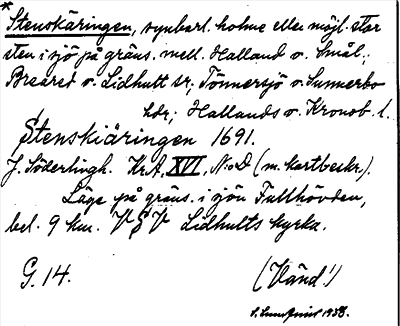 * Stenskäringen, synbarl. holme eller möjl. stor
sten i sjö på gräns. mell. Halland o. Smål.;
Breared o. Lidhult sr; Tönnersjö o. Sunnerbo
hdr; Hallands o. Kronob. l.
Stenskiäringen 1691.
J. Söderlingh. Kr.A, XVI, N:o D (m. kartbeskr.).
Läge på gräns. i sjön Fullhövden,
bel. 9 km. V S V Lidhults kyrka.
G. 14. (Vänd!)
1938.